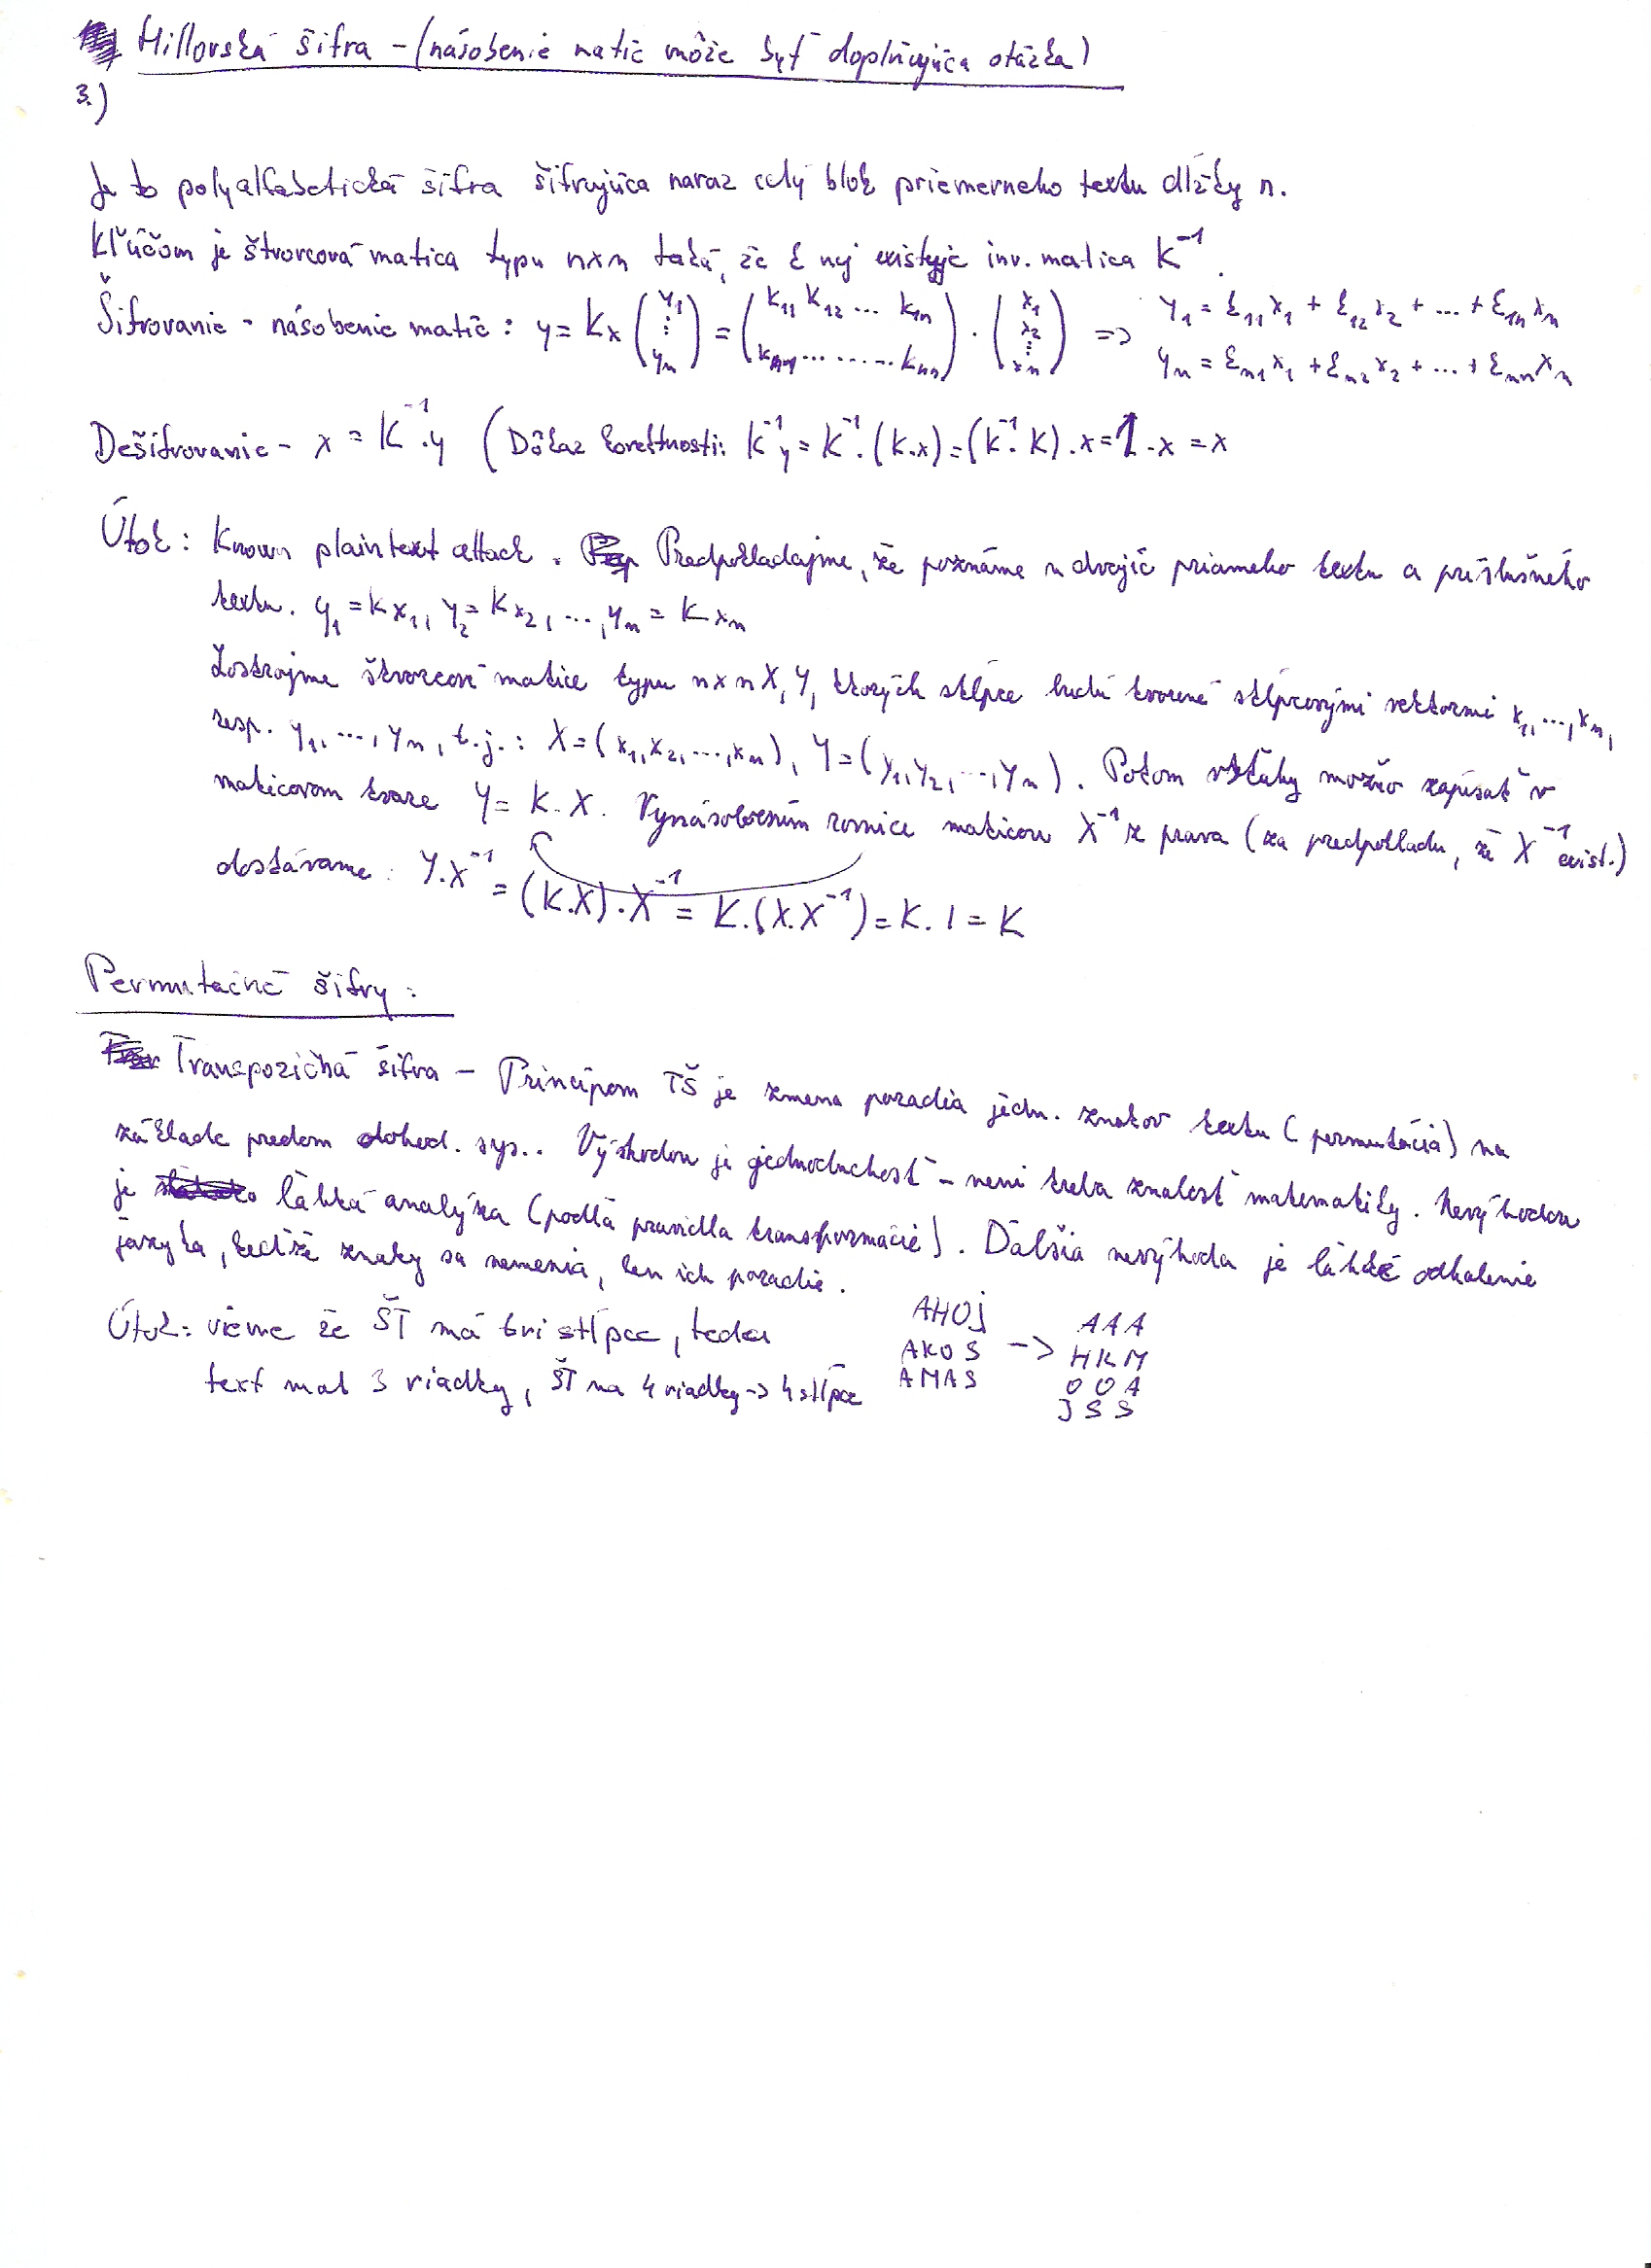 Hillovská šifra - (násobenie matíc môže byť doplňujúca otázka)
3.)
Je to polyalfabetická šifra šifrujúca naraz celý blok priemerneho textu dĺžky n.
Kľúčom je štvorcová matica typu n×n taká, že k nej existuje inv. matica K⁻¹.
Šifrovanie - násobenie matíc: y = Kx (y₁ ⋮ yₙ) = (k₁₁ k₁₂ ... k₁ₙ kₙ₁ ........ kₙₙ) . (x₁ x₂ ⋮ xₙ) => y₁ = k₁₁x₁ + k₁₂x₂ + ... + k₁ₙxₙ
yₙ = kₙ₁x₁ + kₙ₂x₂ + ... + kₙₙxₙ
Dešifrovanie - x = K⁻¹.y (Dôkaz korektnosti: K⁻¹y = K⁻¹.(K.x) = (K⁻¹.K).x = 1.x = x
Útok: Known plaintext attack. Predpokladajme, že poznáme n dvojíc priameho textu a príslušného
textu. y₁ = Kx₁, y₂ = Kx₂, ..., yₙ = Kxₙ
Zostrojme štvorcové matice typu n×n X, Y, ktorých stĺpce budú tvorené stĺpcovými vektormi x₁, ..., xₙ,
resp. y₁, ..., yₙ, t.j.: X = (x₁, x₂, ..., xₙ), Y = (y₁, y₂, ..., yₙ). Potom vzťahy možno zapísať v
maticovom tvare Y = K.X. Vynásobením rovnice maticou X⁻¹ z prava (za predpokladu, že X⁻¹ exist.)
dostávame: Y.X⁻¹ = (K.X).X⁻¹ = K.(X.X⁻¹) = K.1 = K
Permutačné šifry:
Transpozičná šifra - Princípom TŠ je zmena poradia jedn. znakov textu (permutácia) na
základe predom dohod. sys.. Výhodou je jednoduchosť - není treba znalosť matematiky. Nevýhodou
je ľahká analýza (podľa pravidla transformácie). Ďalšia nevýhoda je ľahké odhalenie
jazyka, keďže znaky sa nemenia, len ich poradie.
Útok: vieme že ŠT má tri stĺpce, teda
text mal 3 riadky, ŠT má 4 riadky -> 4 stĺpce
AHOJ
AKOS ->
AMAS
AAA
HKM
OOA
JSS